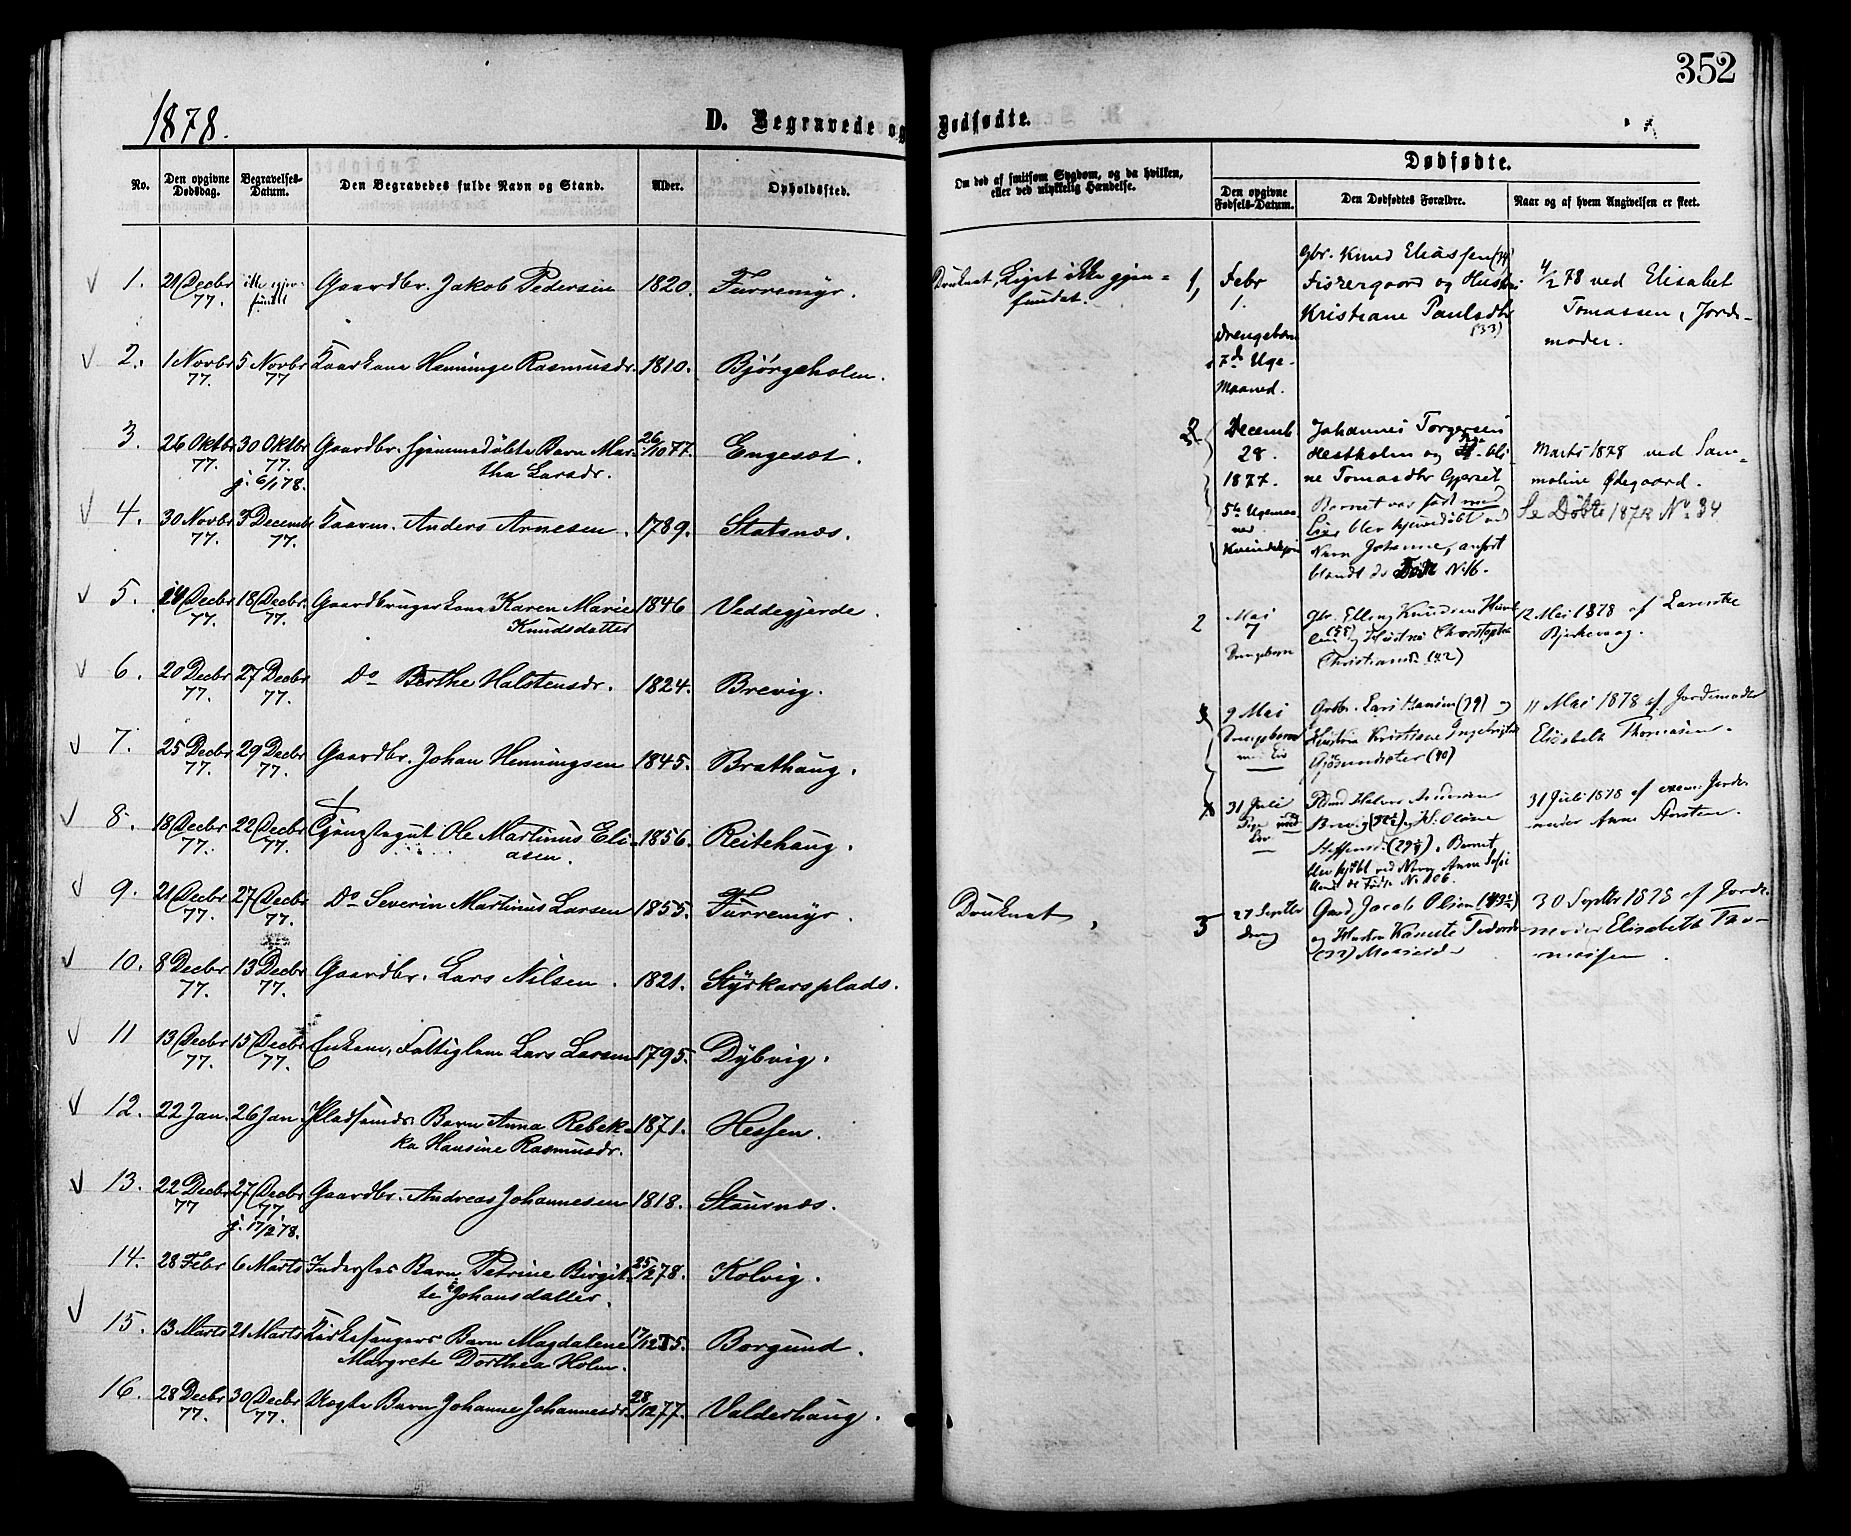 352
1878.
D. Begravede og Dødfødte.
No. Den opgivne Dødsdag. Begravelses-Datum. Den Begravedes fulde Navn og Stand. Alder. Opholdssted.
1. 21 Decbr 77. ikke gjenfundet Gaardbr. Jakob Pedersen 1820. Furremyr.
2. 1 Novbr 77. 5 Novbr 77 Kaarkone Henninge Rasmusdr. 1810. Bjørgeholen.
3. 26 Oktbr 77. 30 Oktbr 77. j. 6/1 78. Gaardbr. hjemmedøbte Barn Mar-
tha Larsdr. 26/10 77. Engeset.
4. 30 Novbr 77. 3 Decembr 77. Kaarm. Anders Arnesen. 1789. Slatsnæs.
5. 14 Decbr 77. 18 Decbr. 77. Gaardbrugerkone Karen Marie
Knudsdatter 1846 Veddegjerde.
6. 20 Decbr 77. 27 Decbr 77. Do Berthe Halstensdr. 1824. Brevig.
7. 25 Decbr 77. 29 Decbr 77. Gaardbr. Johan Henningsen 1845. Brathaug.
8. 18 Decbr 77. 22 Decbr 77. Tjenestegut Ole Martinus Eli-
asen. 1856. Reitehaug.
9. 21 Decbr 77. 27 Decbr 77. Do Severin Martinus Larsen 1855. Furremyr.
10. 8 Decbr 77. 13 Decbr 77. Gaardbr. Lars Nilsen. 1821. Styrkarsplads.
11 13 Decbr 77. 15 Decbr 77. Enkem, Fattiglem Lars Larsen 1795. Dybvig.
12. 22 Jan. 26 Jan. Pladsmds. Barn Anna Rebek-
ka Hansine Rasmusdr. 1871. Hessen.
13. 22 Decbr 77 27 Decbr 77. j. 17/2 78. Gaardbr. Andreas Johannesen 1818. Staurnæs.
14. 28 Febr 6 Marts Inderstes Barn Petrine Birgit-
te Johansdatter. 25/2 78. Kolvig.
15. 13 Marts 21 Marts Kirkesangers Barn Magdalene
Margrete Dorthea Holm. 17/12 75. Borgund.
16. 28 Decbr 77. 30 Decbr 77. Uægte Barn Johanne Johannesdr. 28/12 77. Valderhaug.
Om død af smitsom Sygdom, og da hvilken, eller ved ulykkelig Hændelse.
Druknet, Liget ikke gjen-
fundet.
Druknet,
Dødfødte.
Den opgivne Fødsels-Datum. Den Dødfødtes Forældre. Naar og af hvem Angivelsen er skeet.
1, Febr 1. Drengebarn i 7de Uge- Maaned.
Gbr. Knud Eliassen
og Hustru
Kristiane Paulsdtr (33)
4/2 78 ved Elisabet
Tomassen, Jorde-
moder.
Decemb 28. 1877.
Johannes Torgersen
Hestholm og
ne Tomasdtr Gjerset
Barnet var født med
Liv, blev hjemmedøbt ved
Navn Johanne, anført
blandt de Fødte No 16.
Marts 1878 ved
Ødegaard.
Se Døbte 1878 No 34
2 Mai 7 Drengebarn
Gbr. Elling Knudsen
og Hustru
(42)
12 Mai 1878 af
Bjerkevaag.
9 Mai Drengebarn
Gbr. Lars Hansen (39) og
Hustru Kristiane Ingebrigtine
(40)
11 Mai 1878 af Jordemoder
Elisabeth Thomasen.
31 Juli Pige med Liv
Andersen
Brevig
Barnet
blev hjdøbt ved Navn Anne
de Fødte No 106.
31 Juli 1878 af exam. Jorde-
moder Anne Aarsten.
5 27 Septbr dreng
Gard. Jacob Olsen
og Hustru
30 Septbr 1878 af Jorde-
moder Elisabeth Tho-
massen.